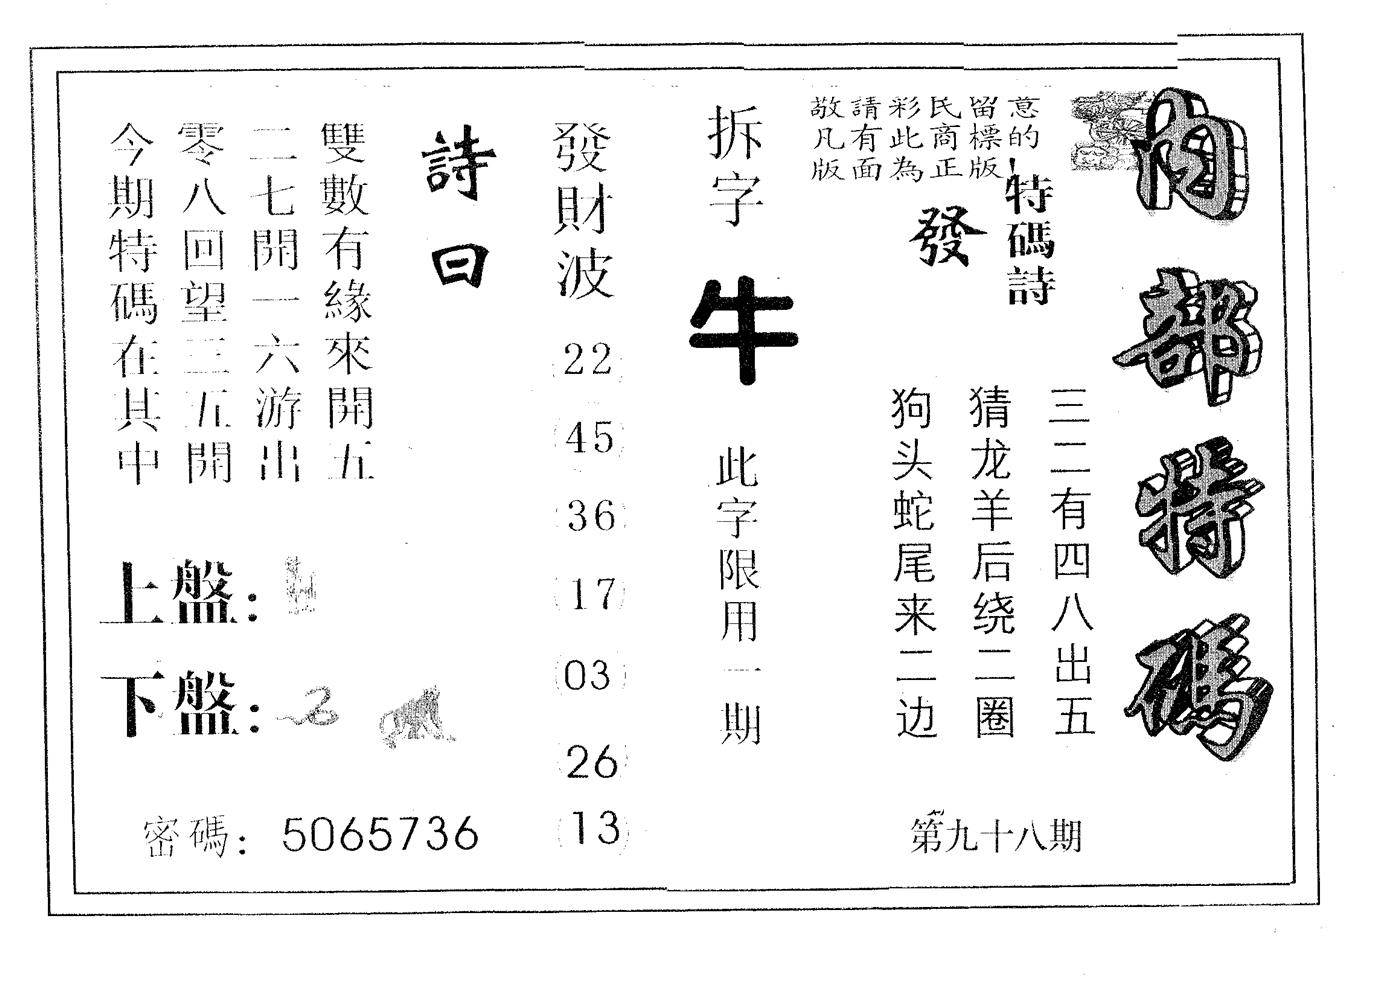 內部特碼
敬請彩民留意
凡有此商標的
版面為正版!
特碼詩
發
三二有四八出五
猜龙羊后绕二圈
狗头蛇尾来二边
第九十八期
拆字
牛
此字限用一期
發財波
22
45
36
17
03
26
13
詩曰
雙數有緣來開五
二七開一六游出
零八回望三五開
今期特碼在其中
上盤:
下盤:
密碼: 5065736